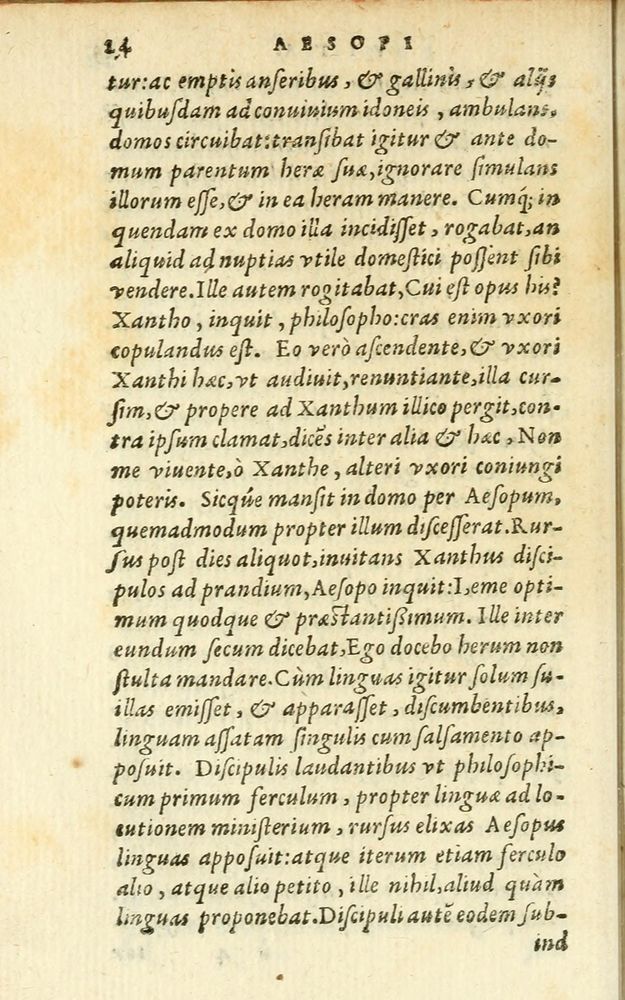 24 AESOPI
tur:ac emptis anſeribus, & gallinis, & alijs
quibuſdam ad conuiuium idoneis, ambulans,
domos circuibat:tranſibat igitur & ante do-
mum parentum heræ ſuæ,ignorare ſimulans
illorum eſſe,& in ea heram manere. Cumq́; in
quendam ex domo illa incidiſſet, rogabat,an
aliquid ad nuptias vtile domeſtici poſſent ſibi
vendere.Ille autem rogitabat,Cui eſt opus his?
Xantho, inquit, philoſopho:cras enim vxori
copulandus eſt. Eo verò aſcendente,& vxori
Xanthi hæc,vt audiuit,renuntiante,illa cur-
ſim,& propere ad Xanthum illico pergit,con-
tra ipſum clamat,dicẽs inter alia & hæc, Non
me viuente,ò Xanthe, alteri vxori coniungi
poteris. Sicq́ue manſit in domo per Aeſopum,
quemadmodum propter illum diſceſſerat.Rur-
ſus poſt dies aliquot,inuitans Xanthus diſci-
pulos ad prandium,Aeſopo inquit:I,eme opti-
mum quodque & præſtantißimum. Ille inter
eundum ſecum dicebat,Ego docebo herum non
ſtulta mandare.Cùm linguas igitur ſolum ſu-
illas emiſſet, & apparaſſet, diſcumbentibus,
linguam aſſatam ſingulis cum ſalſamento ap-
poſuit. Diſcipulis laudantibus vt philoſophi-
cum primum ferculum, propter linguæ ad lo-
cutionem miniſterium, rurſus elixas Aeſopus
linguas appoſuit:atque iterum etiam ferculo
alio, atque alio petito, ille nihil,aliud quàm
linguas proponebat.Diſcipuli autẽ eodem ſub-
ind